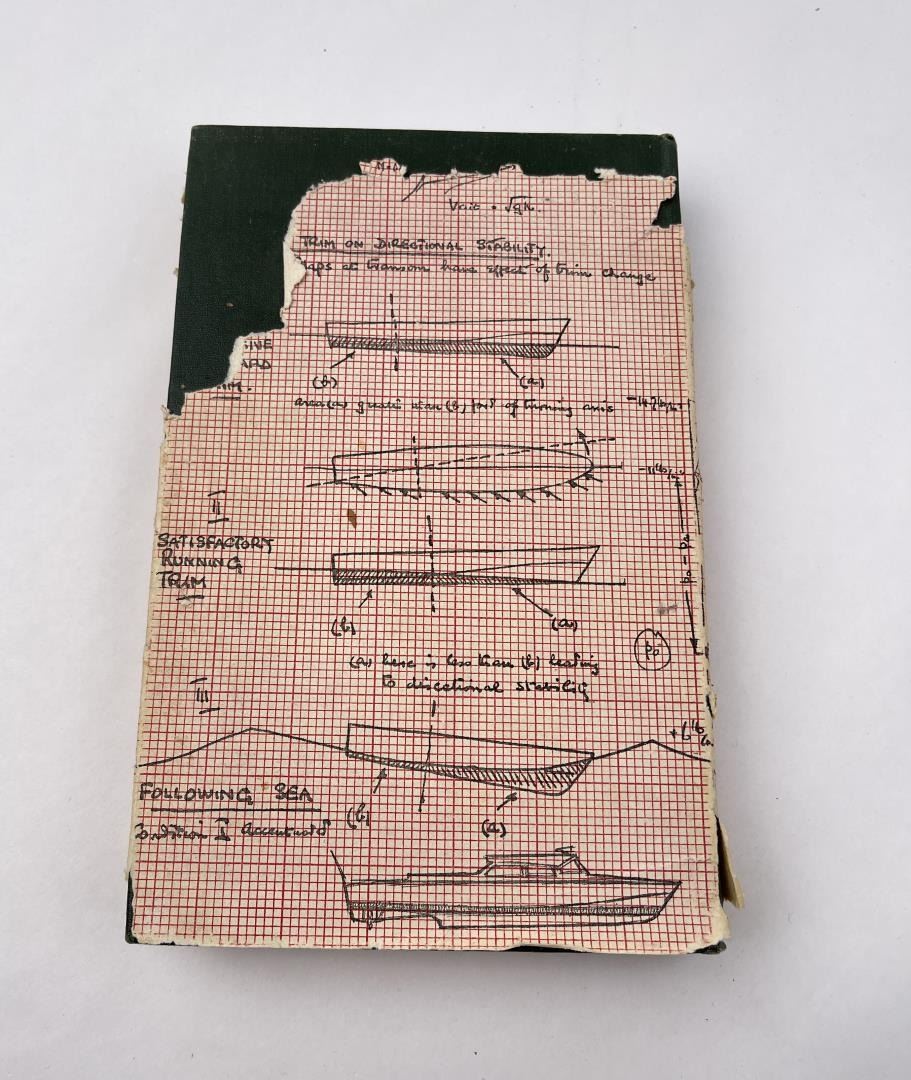 Vcrit = √gh.
TRIM ON DIRECTIONAL STABILITY.
at transom have effect of trim change
(b) (a)
area (a) greater than (b) of turning axis
II
SATISFACTORY
RUNNING
TRIM
(b) (a)
(a) here is less than (b) leading
to directional stability
Po
III
FOLLOWING SEA
Condition I accentuated
(b) (a)